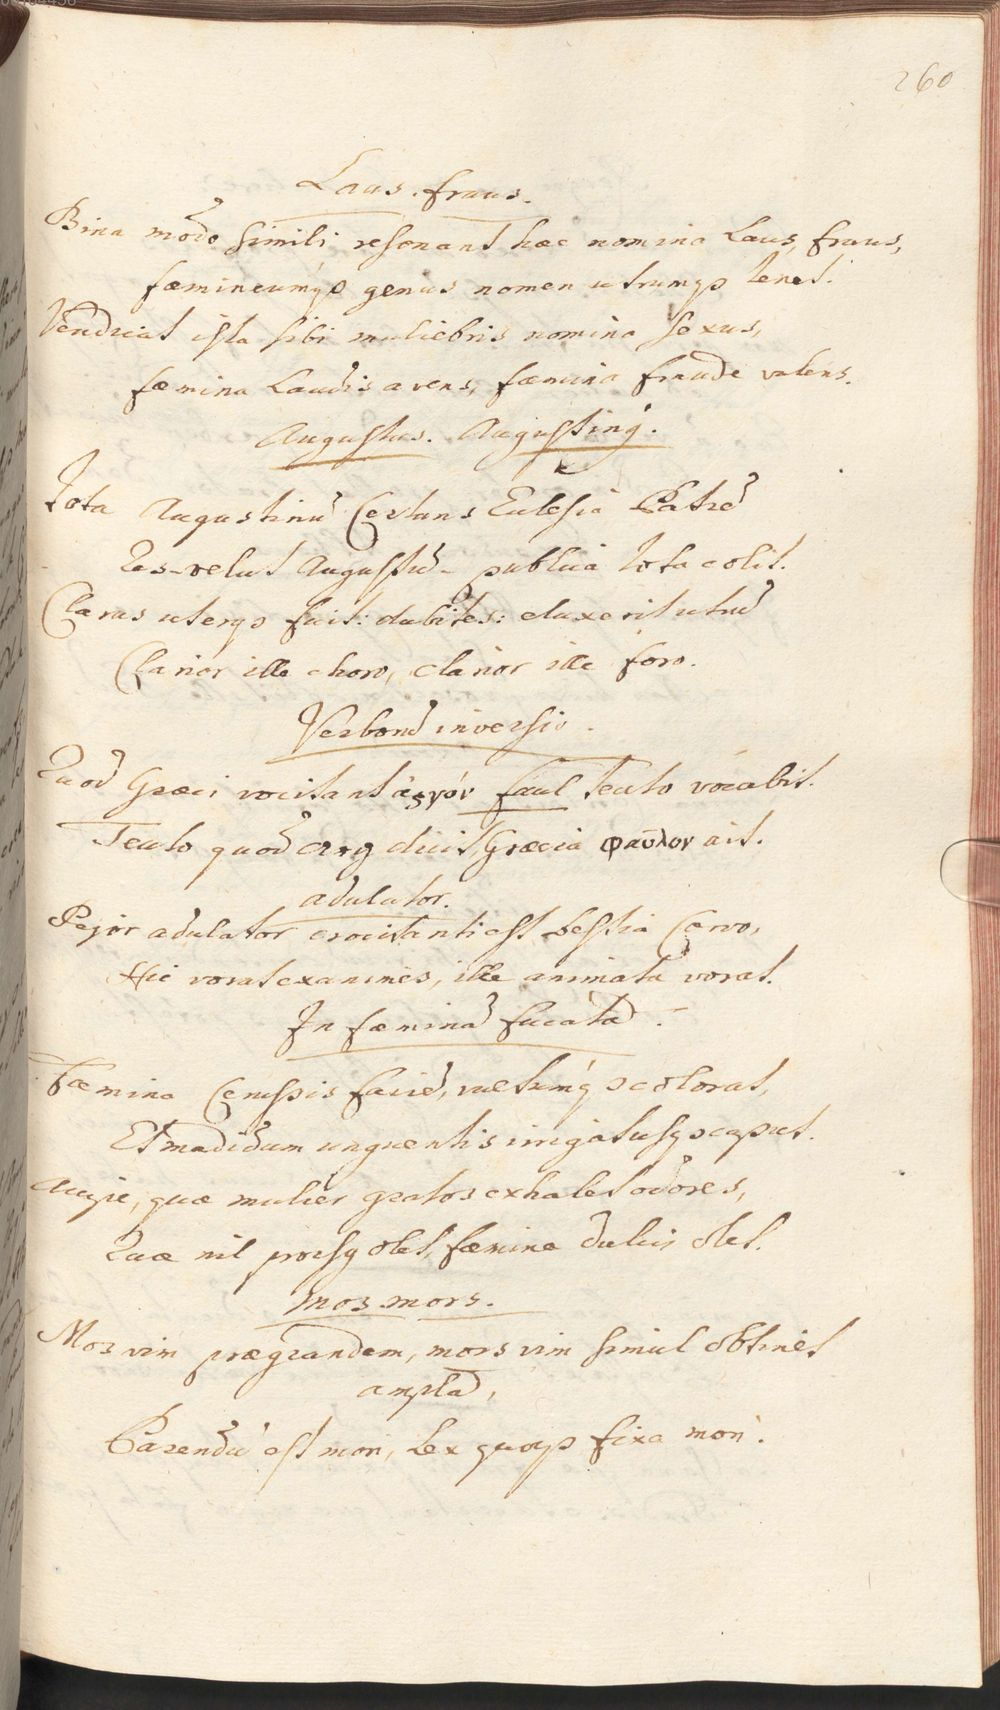 260
Laus. fraus.
Bina modo simili resonant hæc nomina Laus, fraus,
fæmineumq́3 genus nomen utrumq3 tenet.
Vendicat ista sibi muliebris nomina sexus,
fæmina Laudis avens, fæmina fraude valens.
Augustus. Augustinq́.
Tota Augustinū Certans Eclesia Patrē
Res-velut Augustū- publica tota colit.
Clarus uterq3 fuit: dubites: eluxerit utrū
Clarior ille choro, clarior ille foro.
Verborū inversio.
Quod Græci vocitant ἀργόν faul Teuto vocabit.
Teuto quod arg dicit, Græcia φαῦλον ait.
adulator.
Pejor adulator crocitanti est bestia Corvo,
Hic vorat exanimes, ille animata vorat.
In fæminā fucatā.
Fæmina Cerussis faciē, vultumq́3 colorat,
Et madidum unguentis irrigat usq3 caput.
Auge, quæ mulier gratos exhalet odores,
Quæ nil prorsq olet, fæmina dulcis olet.
Mos mors.
Mos vim prægrandem, mors vim simul obtinet
amplā,
Parendū est mori, Lex quoq3 fixa mori.